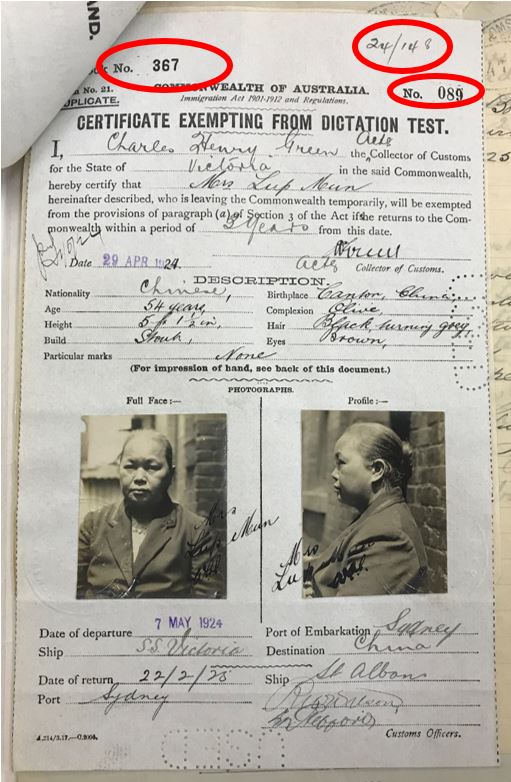 AND.
24/148
ok No. 367
m No. 21.
UPLICATE.
COMMONWEALTH OF AUSTRALIA.
No. 089
Immigration Act 1901-1912 and Regulations.
CERTIFICATE EXEMPTING FROM DICTATION TEST.
I, Charles Henry Green the Actg Collector of Customs
for the State of Victoria in the said Commonwealth,
hereby certify that Mrs Lup Mun
hereinafter described, who is leaving the Commonwealth temporarily, will be exempted
from the provisions of paragraph (a) of Section 3 of the Act if she returns to the Com-
monwealth within a period of 3 years from this date.
Date 29 APR 1924
Actg Collector of Customs.
DESCRIPTION.
Nationality Chinese, Birthplace Canton, China
Age 54 years, Complexion Olive,
Height 5 ft 1½ in, Hair Black turning grey,
Build Stout, Eyes Brown,
Particular marks None
(For impression of hand, see back of this document.)
PHOTOGRAPHS.
Full Face :— Profile :—
Mrs Lup Mun
Mrs Lup Mun
Date of departure 7 MAY 1924 Port of Embarkation Sydney
Ship S.S. Victoria Destination China
Date of return 22/2/25 Ship St Albans
Port Sydney
Customs Officers.
A.214/3.17.—C.2006.